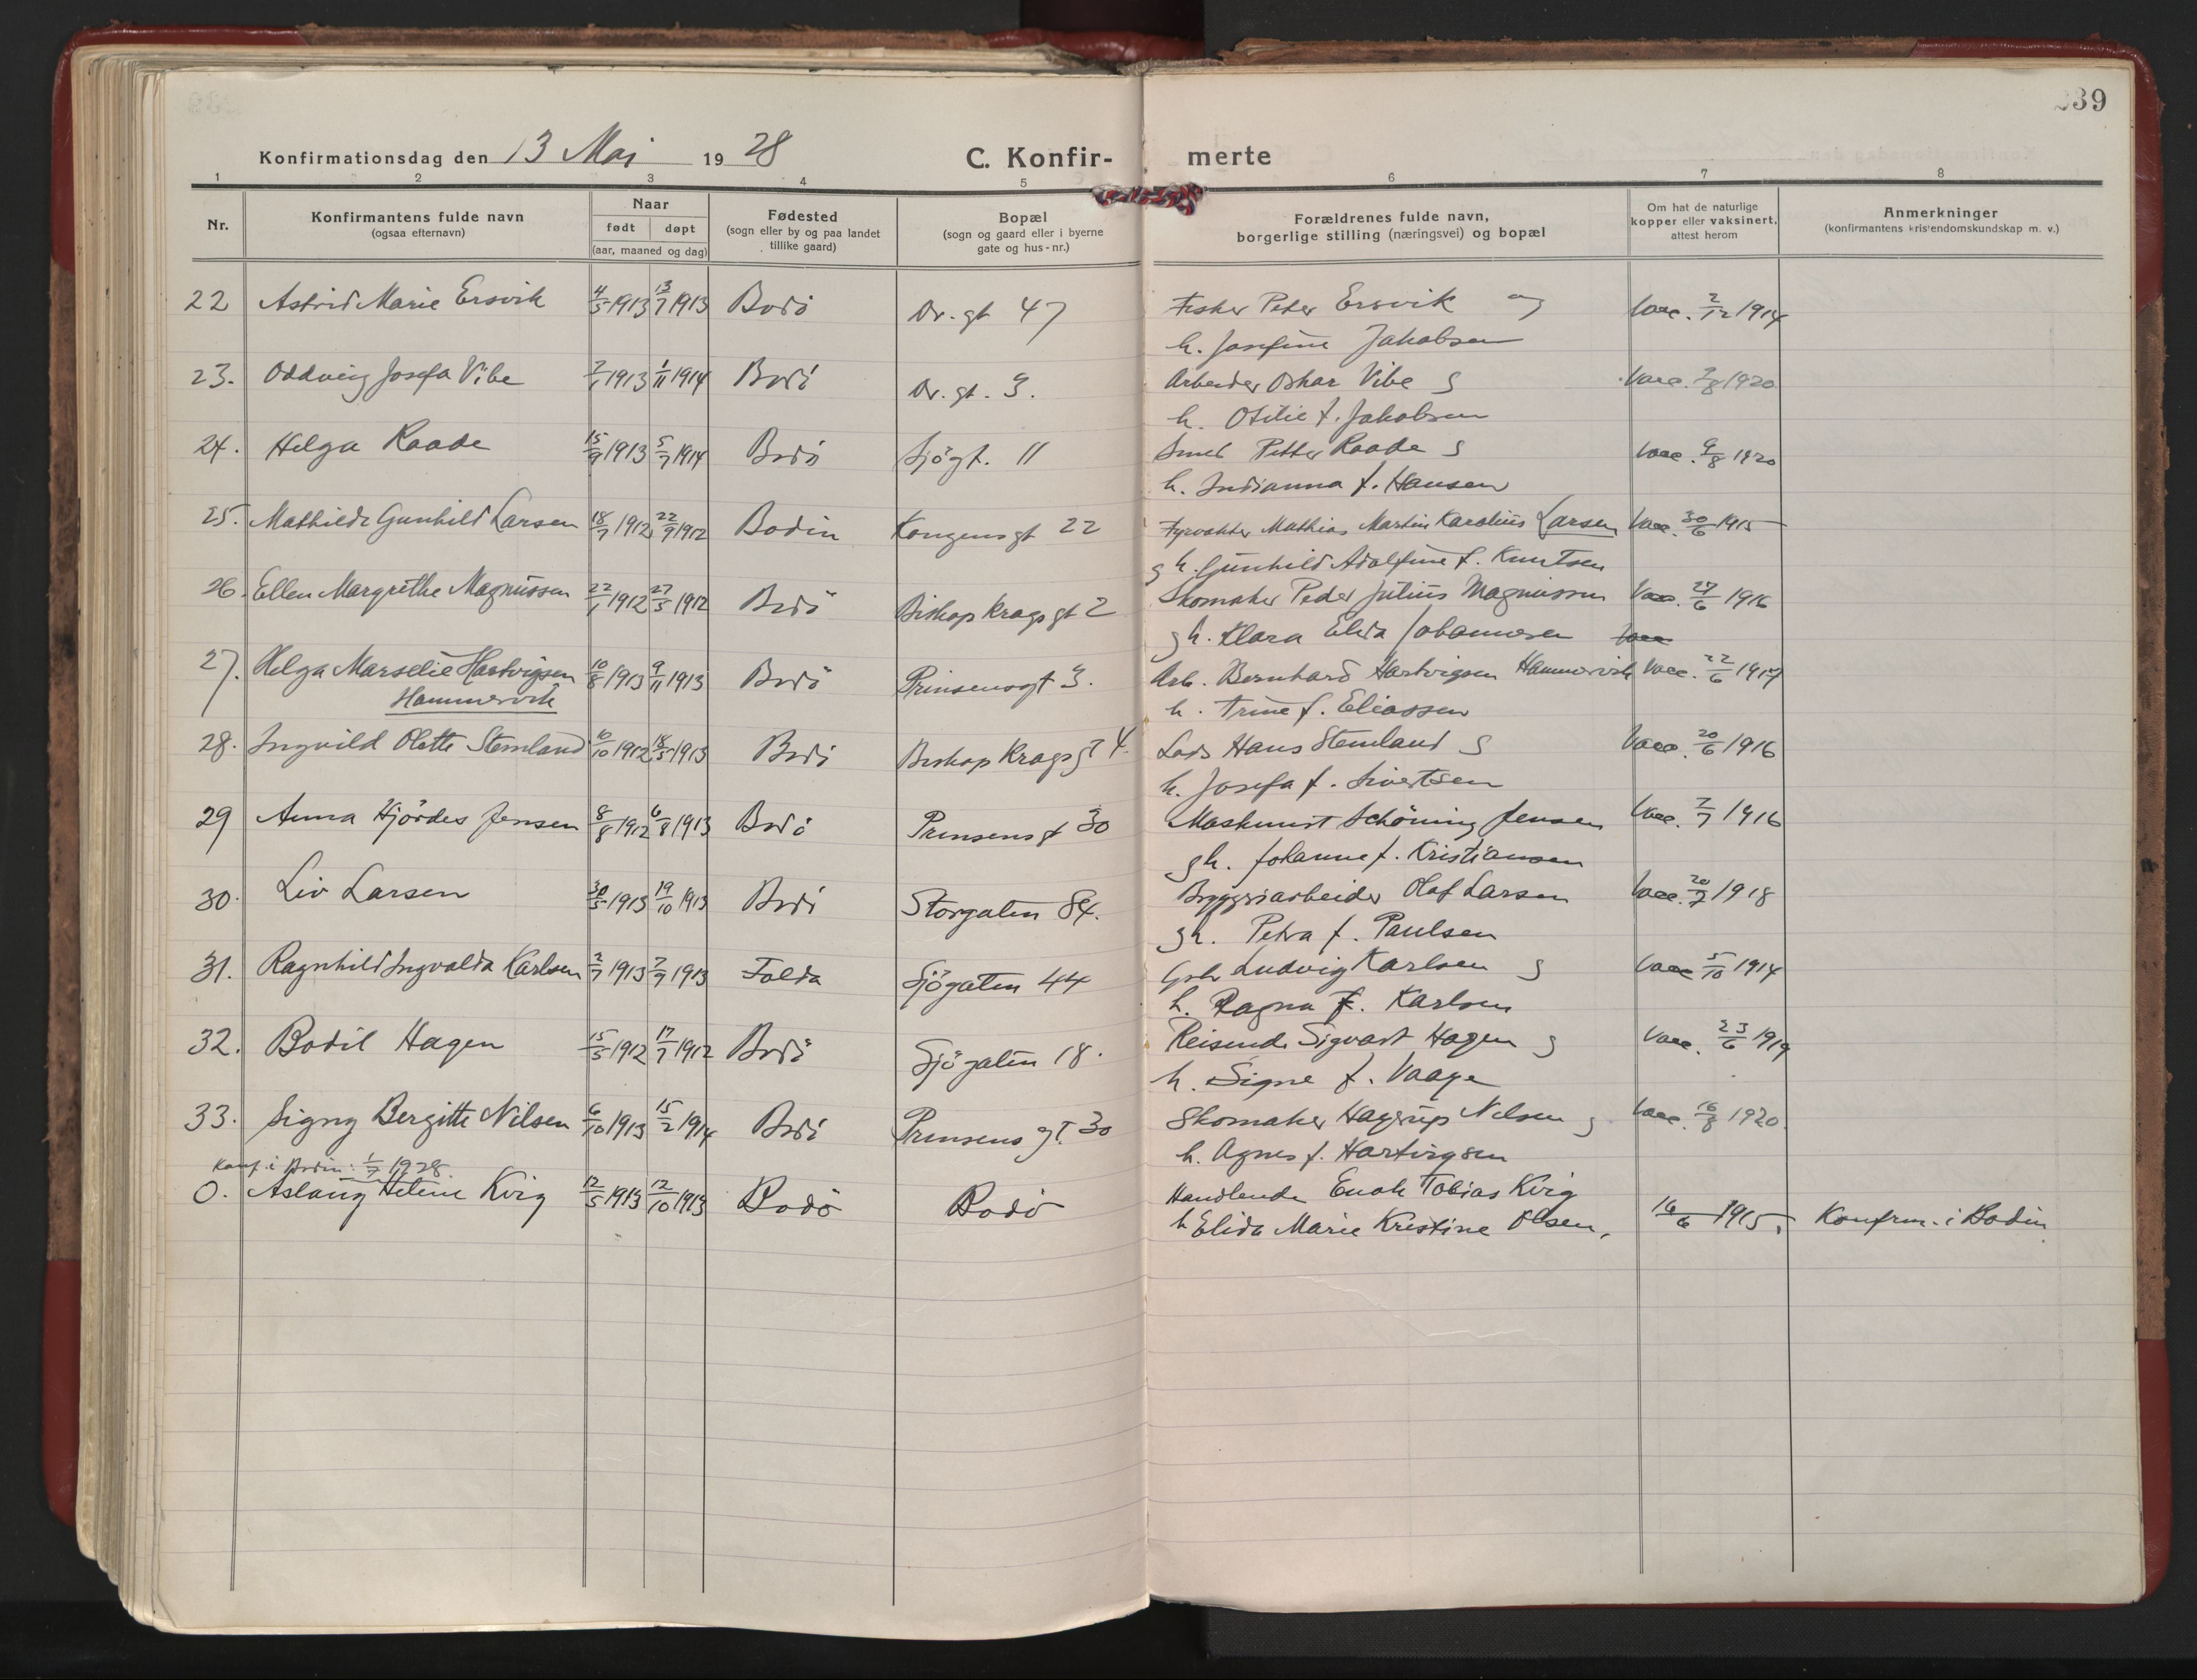 239
Konfirmationsdag den 13 Mai 1928 C. Konfir- merte
1 2 3 4 5 6 7 8
Nr. Konfirmantens fulde navn (ogsaa efternavn) Naar født døpt (aar, maaned og dag) Fødested (sogn eller by og paa landet tillike gaard) Bopæl (sogn og gaard eller i byerne gate og hus-nr.) Forældrenes fulde navn, borgerlige stilling (næringsvei) og bopæl Om hat de naturlige kopper eller vaksinert, attest herom Anmerkninger (konfirmantens kristendomskundskap m. v.)
22 Astrid Marie Ersvik 4/5 1913 13/7 1913 Bodö Dr. gt 47 Fisker Peder Ersvik og Vacc. 2/12 1914
h. Josefine Jakobsen
23. Oddveig Josefa Vibe 1913 1/11 1914 Bodö Dr. gt. 3. Arbeider Oskar Vibe g Vacc. 9/8 1920
h. Otilie f. Jakobsen
24. Helga Raade 15/9 1913 5/7 1914 Bodö Sjögt. 11 Smed Petter Raade g Vacc. 9/8 1920
h. Indianna f. Hansen
25. Mathilde Gunhild Larsen 18/7 1912 22/9 1912 Bodin Kongensgt 22 Fyrvokter Mathias Martin Karolius Larsen Vacc. 30/6 1915
g h. Gunhild Adolfine f. Knutsen
26. Ellen Margrethe Magnussen 22/1 1912 27/5 1912 Bodö Biskop Kragsgt 2 Skomaker Peder Julius Magnussen Vacc. 27/6 1916
g h. Klara Elida Johannesen Vacc
27. Helga Marselie Hartvigsen 10/8 1913 9/11 1913 Bodö Prinsensgt 3. Arb. Bernhard Hartvigsen Hammervik Vacc. 22/6 1917
Hammervik h. Trine f. Eliassen
28. Ingvild Olette Stemland 10/10 1912 18/5 1913 Bodö Biskop Kragsgt 4. Lods Hans Stemland g Vacc. 20/6 1916
h. Josefa f. Sivertsen
29 Anna Hjördes Jensen 8/8 1912 6/8 1913 Bodö Prinsensgt 30 Maskinist Schöning Jensen Vacc. 7/7 1916
g h. Johanne f. Kristiansen
30. Liv Larsen 30/5 1913 19/10 1913 Bodö Storgaten 84. Bryggeriarbeider Olaf Larsen Vacc. 20/7 1918
g h. Petra f. Paulsen
31. Ragnhild Ingvalda Karlsen 2/7 1913 7/9 1913 Folda Sjögaten 44 Ludvig Karlsen g Vacc 5/10 1914
h. Ragna f. Karlsen
32. Bodil Hagen 15/5 1912 17/7 1912 Bodö Sjögaten 18. Reisende Sigvart Hagen g Vacc. 23/6 1919
h. Signe f. Vaage
33. Signy Bergitte Nilsen 6/10 1913 15/2 1914 Bodö Prinsens gt. 30 Skomaker Hagerup Nilsen g. Vacc. 16/8 1920
h. Agnes f. Hartvigsen
Konf. i Bodin: 1/7 1928.
0. Aslaug Helene Kvig 12/5 1913 12/10 1913 Bodö Bodö Handlende Enok Tobias Kvig
h Elida Marie Kristine Olsen, 16/6 1915. Konfirm. i Bodin